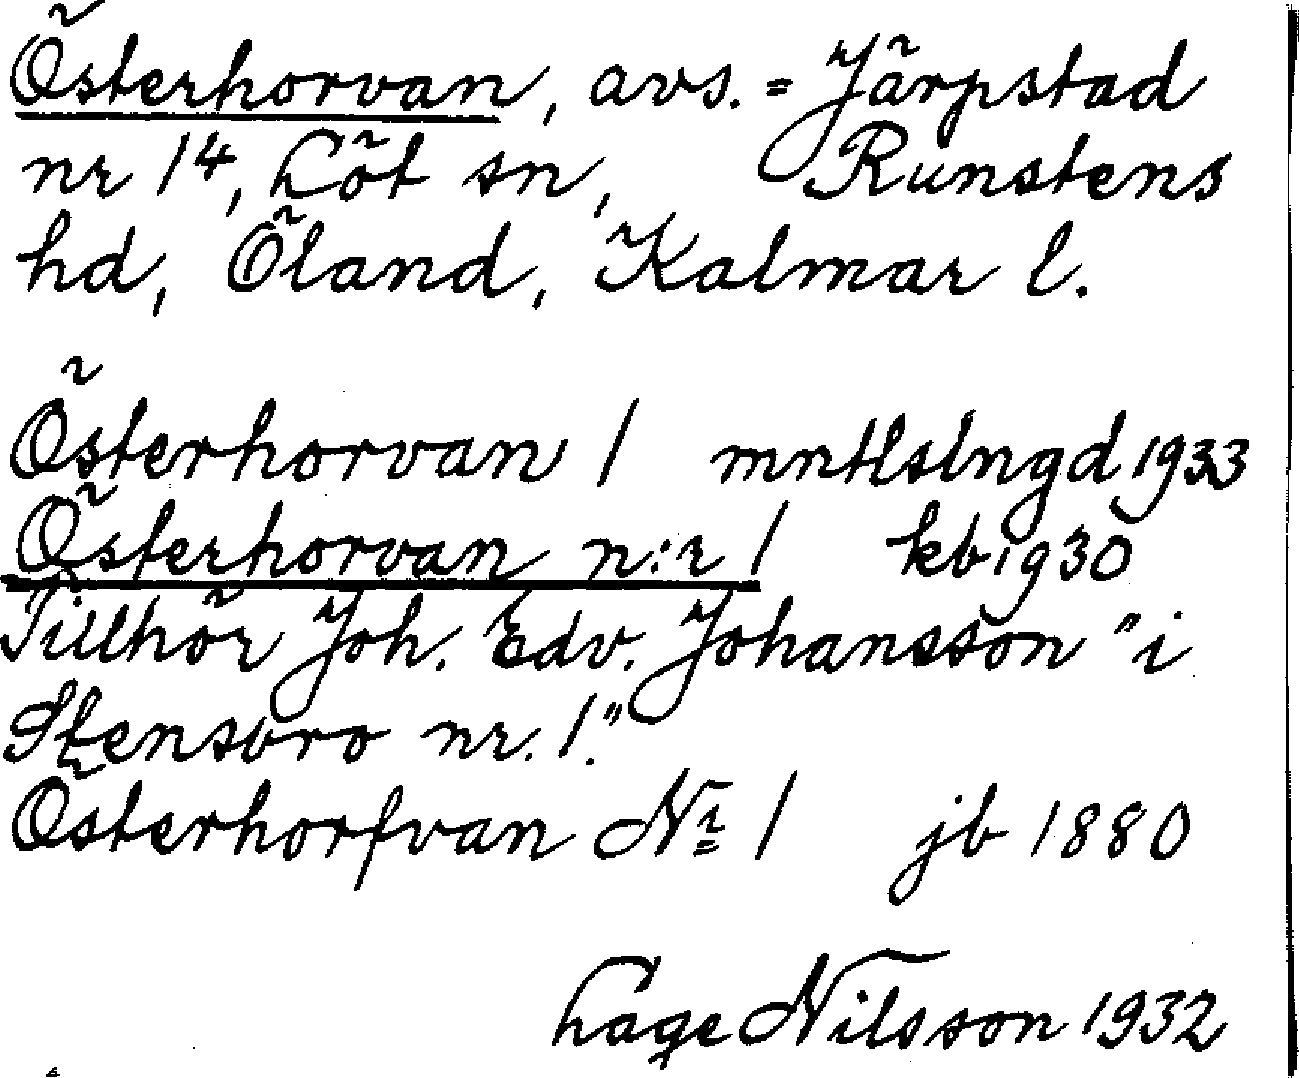 Österhorvan, avs. = Järpstad
nr 14, Löt sn, Runstens
hd, Öland, Kalmar l.
Österhorvan 1 mntlslngd 1933
Österhorvan n:r 1 kb 1930
Tillhör Joh. Edv. Johansson "i
Stensbro nr. 1."
Österhorfvan Nr 1 jb 1880
Lage Nilsson 1932